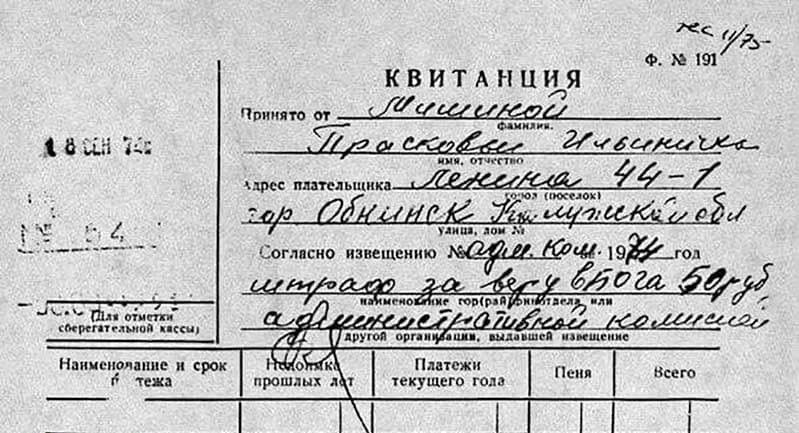 11/75
Ф. № 191
КВИТАНЦИЯ
Принято от Мишиной
фамилия.
Прасковьи Ильиничны
имя, отчество
Адрес плательщика Ленина 44-1
город (поселок)
гор Обнинск Калужской обл
улица, дом №
Согласно извещению № адм. ком. 1974 год
штраф за веру в Бога 50 руб
наименование гор(рай)финотдела или
административной комиссией
другой организации, выдавшей извещение
18 СЕН 74
64
(Для отметки
сберегательной кассы)
Наименование и срок
тежа
Недоимка
прошлых лет
Платежи
текущего года
Пеня
Всего